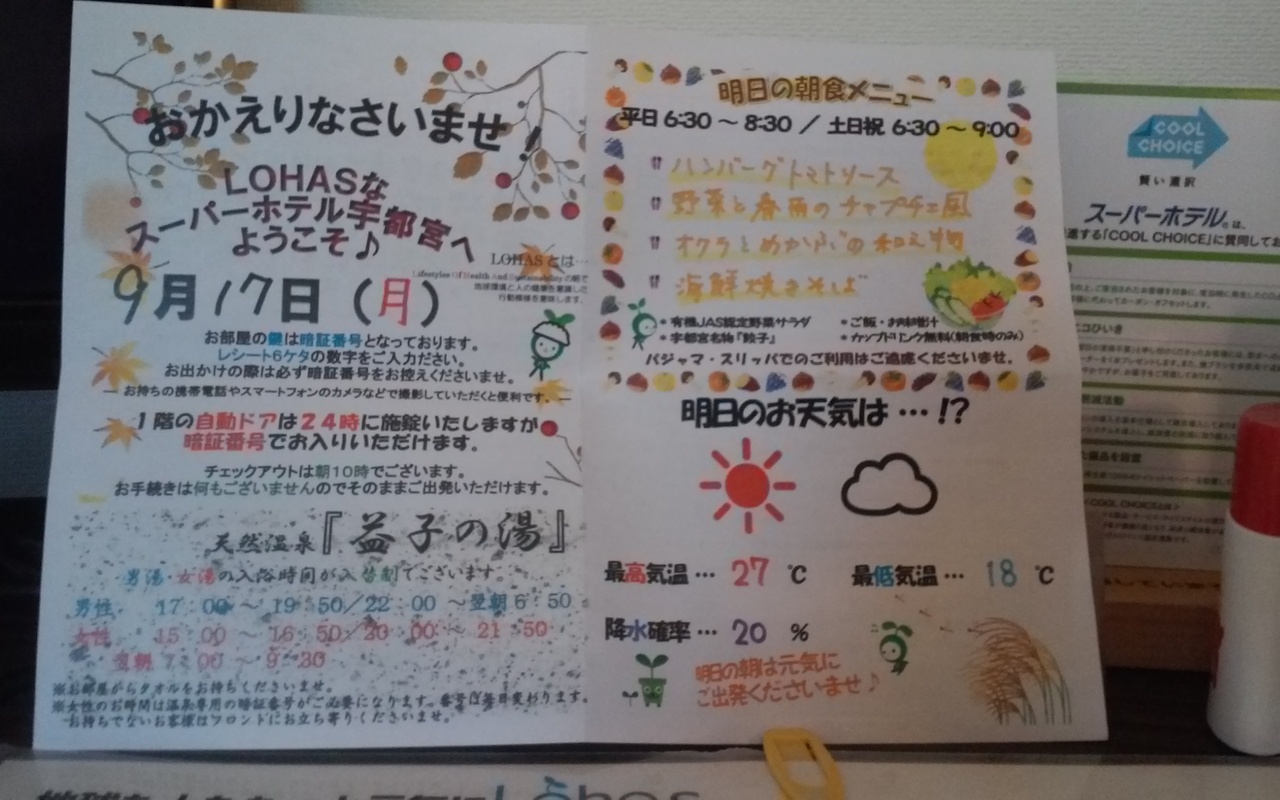 おかえりなさいませ！
LOHASな
スーパーホテル宇都宮へ
ようこそ♪
LOHASとは…
Lifestyles Of Health And Sustainability の略で
地球環境と人の健康を意識した
行動様様を意味します。
9月17日（月）
お部屋の鍵は暗証番号となっております。
レシート6ケタの数字をご入力ださい。
お出かけの際は必ず暗証番号をお控えくださいませ。
― お持ちの携帯電話やスマートフォンのカメラなどで撮影していただくと便利です。―
1階の自動ドアは24時に施錠いたしますが
暗証番号でお入りいただけます。
チェックアウトは朝10時でございます。
お手続きは何もございませんのでそのままご出発いただけます。
天然温泉『益子の湯』
男湯・女湯の入浴時間が入替制でございます。
男性 17：00 ～ 19：50／22：00 ～翌朝6：50
女性 15：00 ～ 16：50／20：00 ～ 21：50
翌朝 7：00 ～ 9：30
※お部屋からタオルをお持ちくださいませ。
※女性のお時間は温泉専用の暗証番号がご必要になります。番号は毎日変わります。
お持ちでないお客様はフロントにお立ち寄りくださいませ。
明日の朝食メニュー
平日 6:30 ～ 8:30 ／ 土日祝 6:30 ～ 9:00
ハンバーグトマトソース
野菜と春雨のチャプチェ風
オクラとめかぶの和え物
海鮮焼きそば
＊有機JAS認定野菜サラダ ＊ご飯・お味噌汁
＊宇都宮名物『餃子』 ＊カップドリンク無料(朝食時のみ)
パジャマ・スリッパでのご利用はご遠慮くださいませ。
明日のお天気は … !?
最高気温 … 27 ℃ 最低気温 … 18 ℃
降水確率 … 20 ％
明日の朝は元気に
ご出発くださいませ♪
COOL
CHOICE
賢い選択
スーパーホテルは、
「COOL CHOICE」に賛同してお
エコひいき
COOL CHOICEとは
Lohas